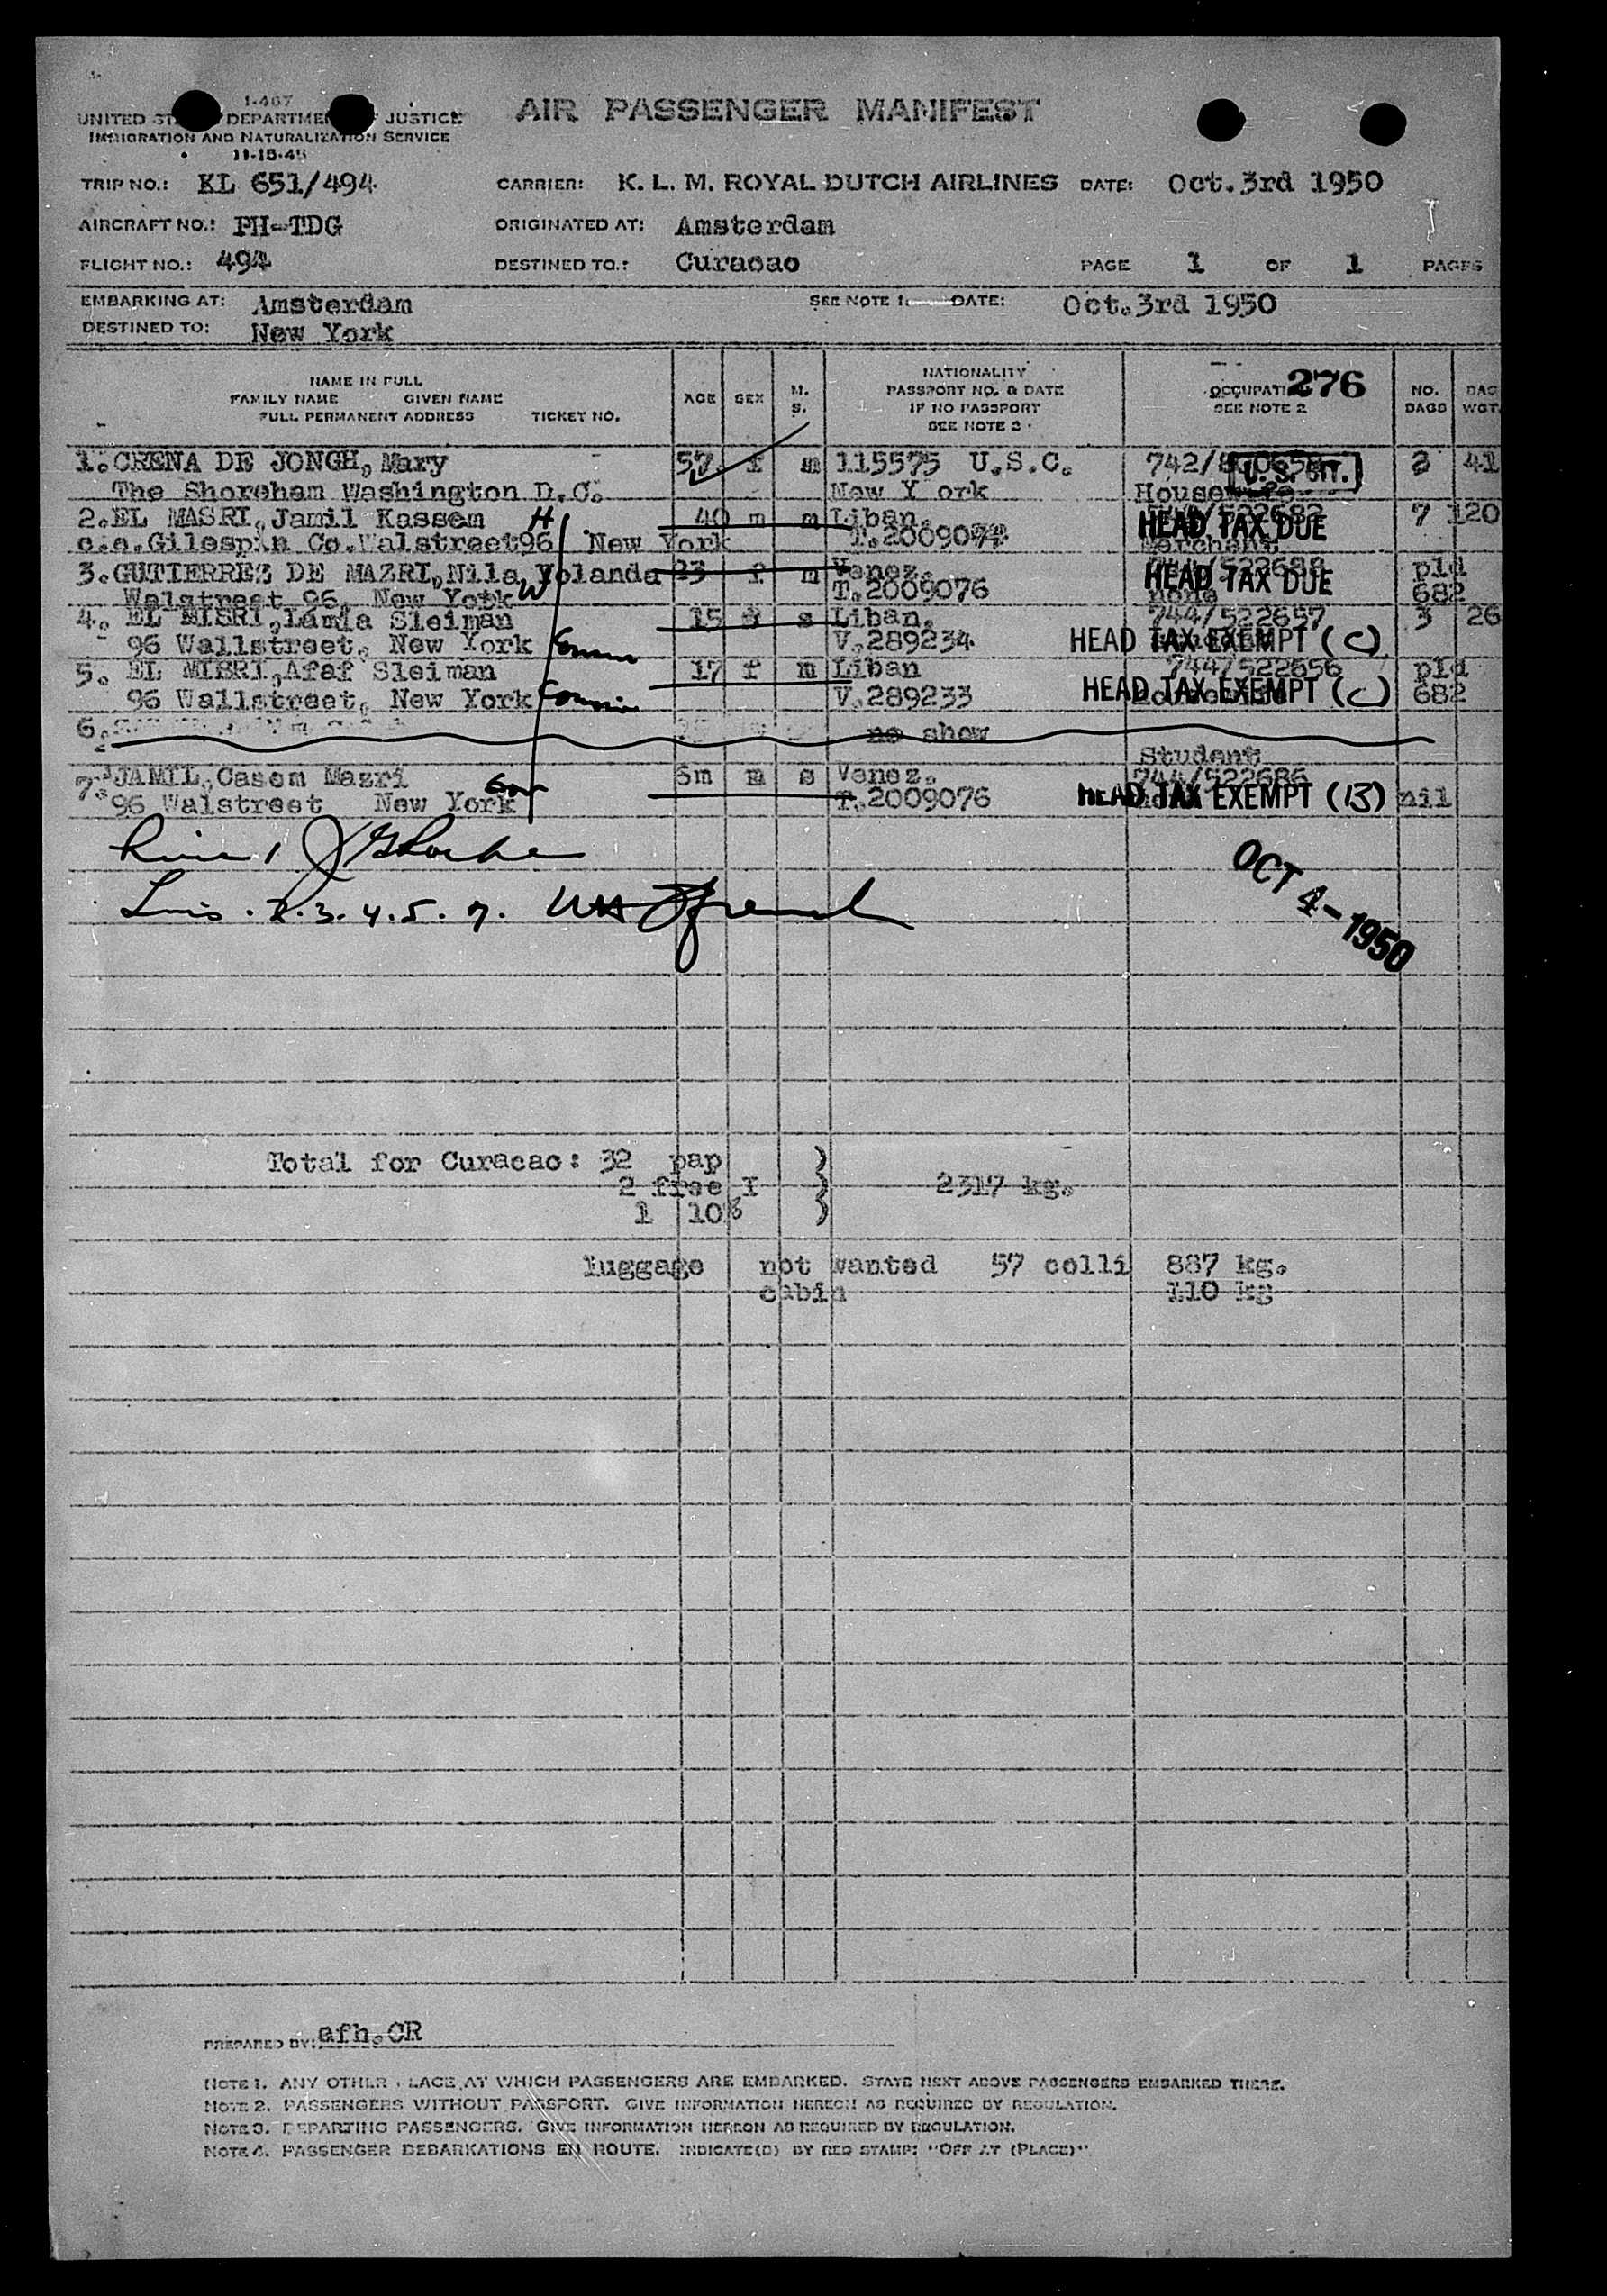 I-467
UNITED ST DEPARTMEN JUSTICE
IMMIGRATION AND NATURALIZATION SERVICE
11-15-45
AIR PASSENGER MANIFEST
TRIP NO.: KL 651/494 CARRIER: K. L. M. ROYAL DUTCH AIRLINES DATE: Oct.3rd 1950
AIRCRAFT NO.: PH-TDG ORIGINATED AT: Amsterdam
FLIGHT NO.: 494 DESTINED TO.: Curacao PAGE 1 OF 1 PAGES
EMBARKING AT: Amsterdam SEE NOTE 1. DATE: Oct.3rd 1950
DESTINED TO: New York
NAME IN FULL
FAMILY NAME GIVEN NAME
FULL PERMANENT ADDRESS TICKET NO.
AGE SEX M. S.
NATIONALITY
PASSPORT NO. & DATE
IF NO PASSPORT
SEE NOTE 2
OCCUPATI 276
SEE NOTE 2
NO. BAGS
BAG WGT.
1. CRENA DE JONGH, Mary 57 f m 115575 U.S.C. 742/ U. S. CIT. 2 41
The Shoreham Washington D.C. New Y ork House
2. EL MASRI, Jamil Kassem H 40 m m Liban. HEAD TAX DUE 7 120
c.o.Gilespin Co.Walstreet96 New York T.2009074 Merchant
3. GUTIERREZ DE MAZRI, Nila, Yolanda 23 f m Venez. HEAD TAX DUE pld
Walstreet 96, New York W T.2009076 none 682
4. EL MISRI, Lamia Sleiman 15 s Liban. 744/522657 3 26
96 Wallstreet, New York V.289234 HEAD TAX EXEMPT (C)
5. EL MISRI, Afaf Sleiman 17 f m Liban 744/522656 pld
96 Wallstreet, New York V.289233 HEAD TAX EXEMPT (C) 682
6. no show
Student
7. JAMIL, Casem Mazri 6m m s Venez. 744/522686
96 Walstreet New York Son T.2009076 HEAD TAX EXEMPT (13) nil
2. 3. 4. 5. 7.
OCT 4-1950
Total for Curacao: 32 pap
2 free I 2317 kg.
1 10%
luggage not wanted 57 colli 887 kg.
cabin 110 kg
PREPARED BY: afh.CR
NOTE 1. ANY OTHER PLACE AT WHICH PASSENGERS ARE EMBARKED. STATE NEXT ABOVE PASSENGERS EMBARKED THERE.
NOTE 2. PASSENGERS WITHOUT PASSPORT. GIVE INFORMATION HEREON AS REQUIRED BY REGULATION.
NOTE 3. DEPARTING PASSENGERS. GIVE INFORMATION HEREON AS REQUIRED BY REGULATION.
NOTE 4. PASSENGER DEBARKATIONS EN ROUTE. INDICATE(D) BY RED STAMP: "OFF AT (PLACE)".